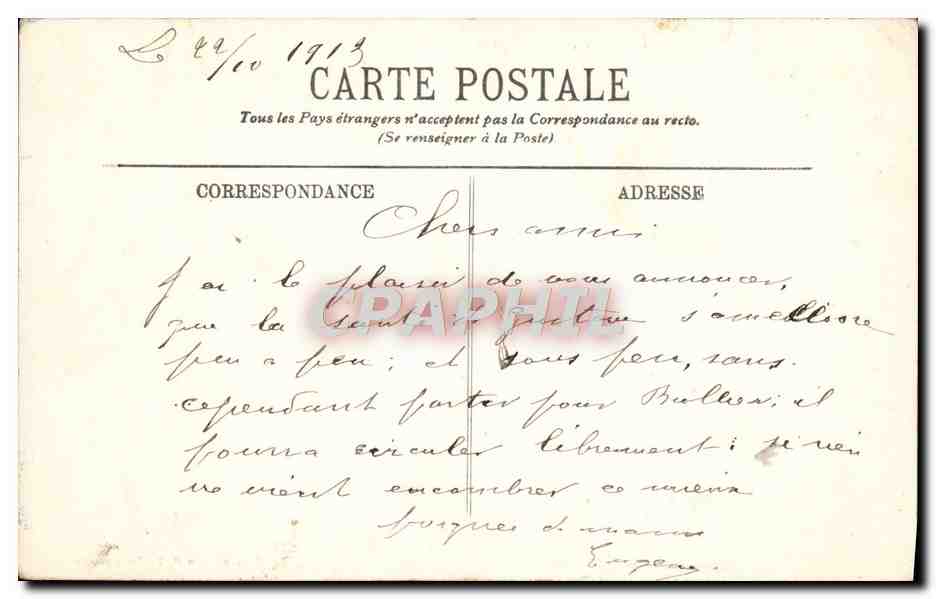 Le 22/10 1913
CARTE POSTALE
Tous les Pays étrangers n'acceptent pas la Correspondance au recto.
(Se renseigner à la Poste)
CORRESPONDANCE ADRESSE
Chers amis
J'ai le plaisir de vous annoncer,
que la santé de s'améliore
CPAPHIL
peu a peu; et sous peu, sans
cependant partir pour Bullier; il
pourra circuler librement: si rien
ne vient encombrer ce mieux
poignée d mains
Eugene